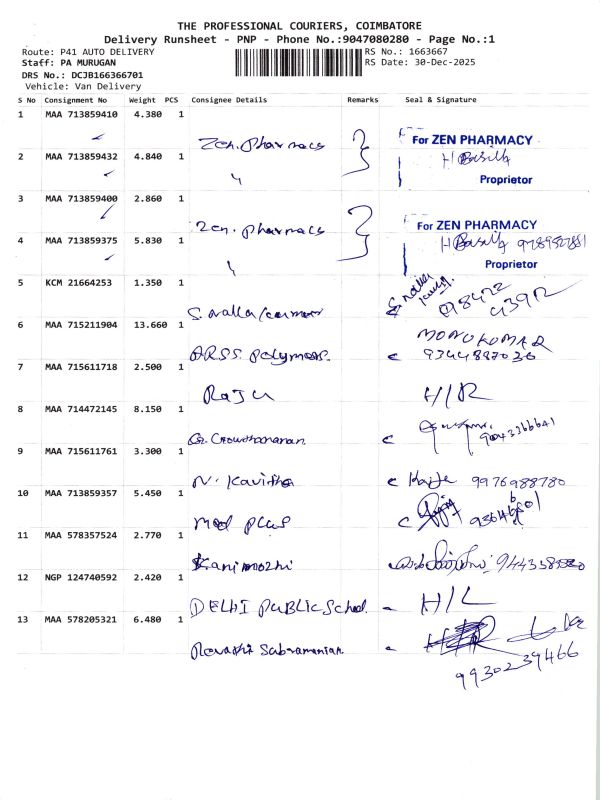 THE PROFESSIONAL COURIERS, COIMBATORE
Delivery Runsheet - PNP - Phone No.:9047080280 - Page No.:1
Route: P41 AUTO DELIVERY RS No.: 1663667
Staff: PA MURUGAN RS Date: 30-Dec-2025
DRS No.: DCJB166366701
Vehicle: Van Delivery
S No Consignment No Weight PCS Consignee Details Remarks Seal & Signature
1 MAA 713859410 4.380 1
Zen. Pharmacy For ZEN PHARMACY
2 MAA 713859432 4.840 1
Proprietor
3 MAA 713859400 2.860 1
Zen. Pharmacy For ZEN PHARMACY
4 MAA 713859375 5.830 1
Proprietor
5 KCM 21664253 1.350 1
6 MAA 715211904 13.660 1
MONOKUMAR
ARSS. Polymers. 9344887036
7 MAA 715611718 2.500 1
Raju H/R
8 MAA 714472145 8.150 1
9 MAA 715611761 3.300 1
N. Kavitha 9976988780
10 MAA 713859357 5.450 1
Med plus
11 MAA 578357524 2.770 1
Kanimozhi
12 NGP 124740592 2.420 1
DELHI PUBLIC School. H/L
13 MAA 578205321 6.480 1
Revathi Subramanian
9930239466